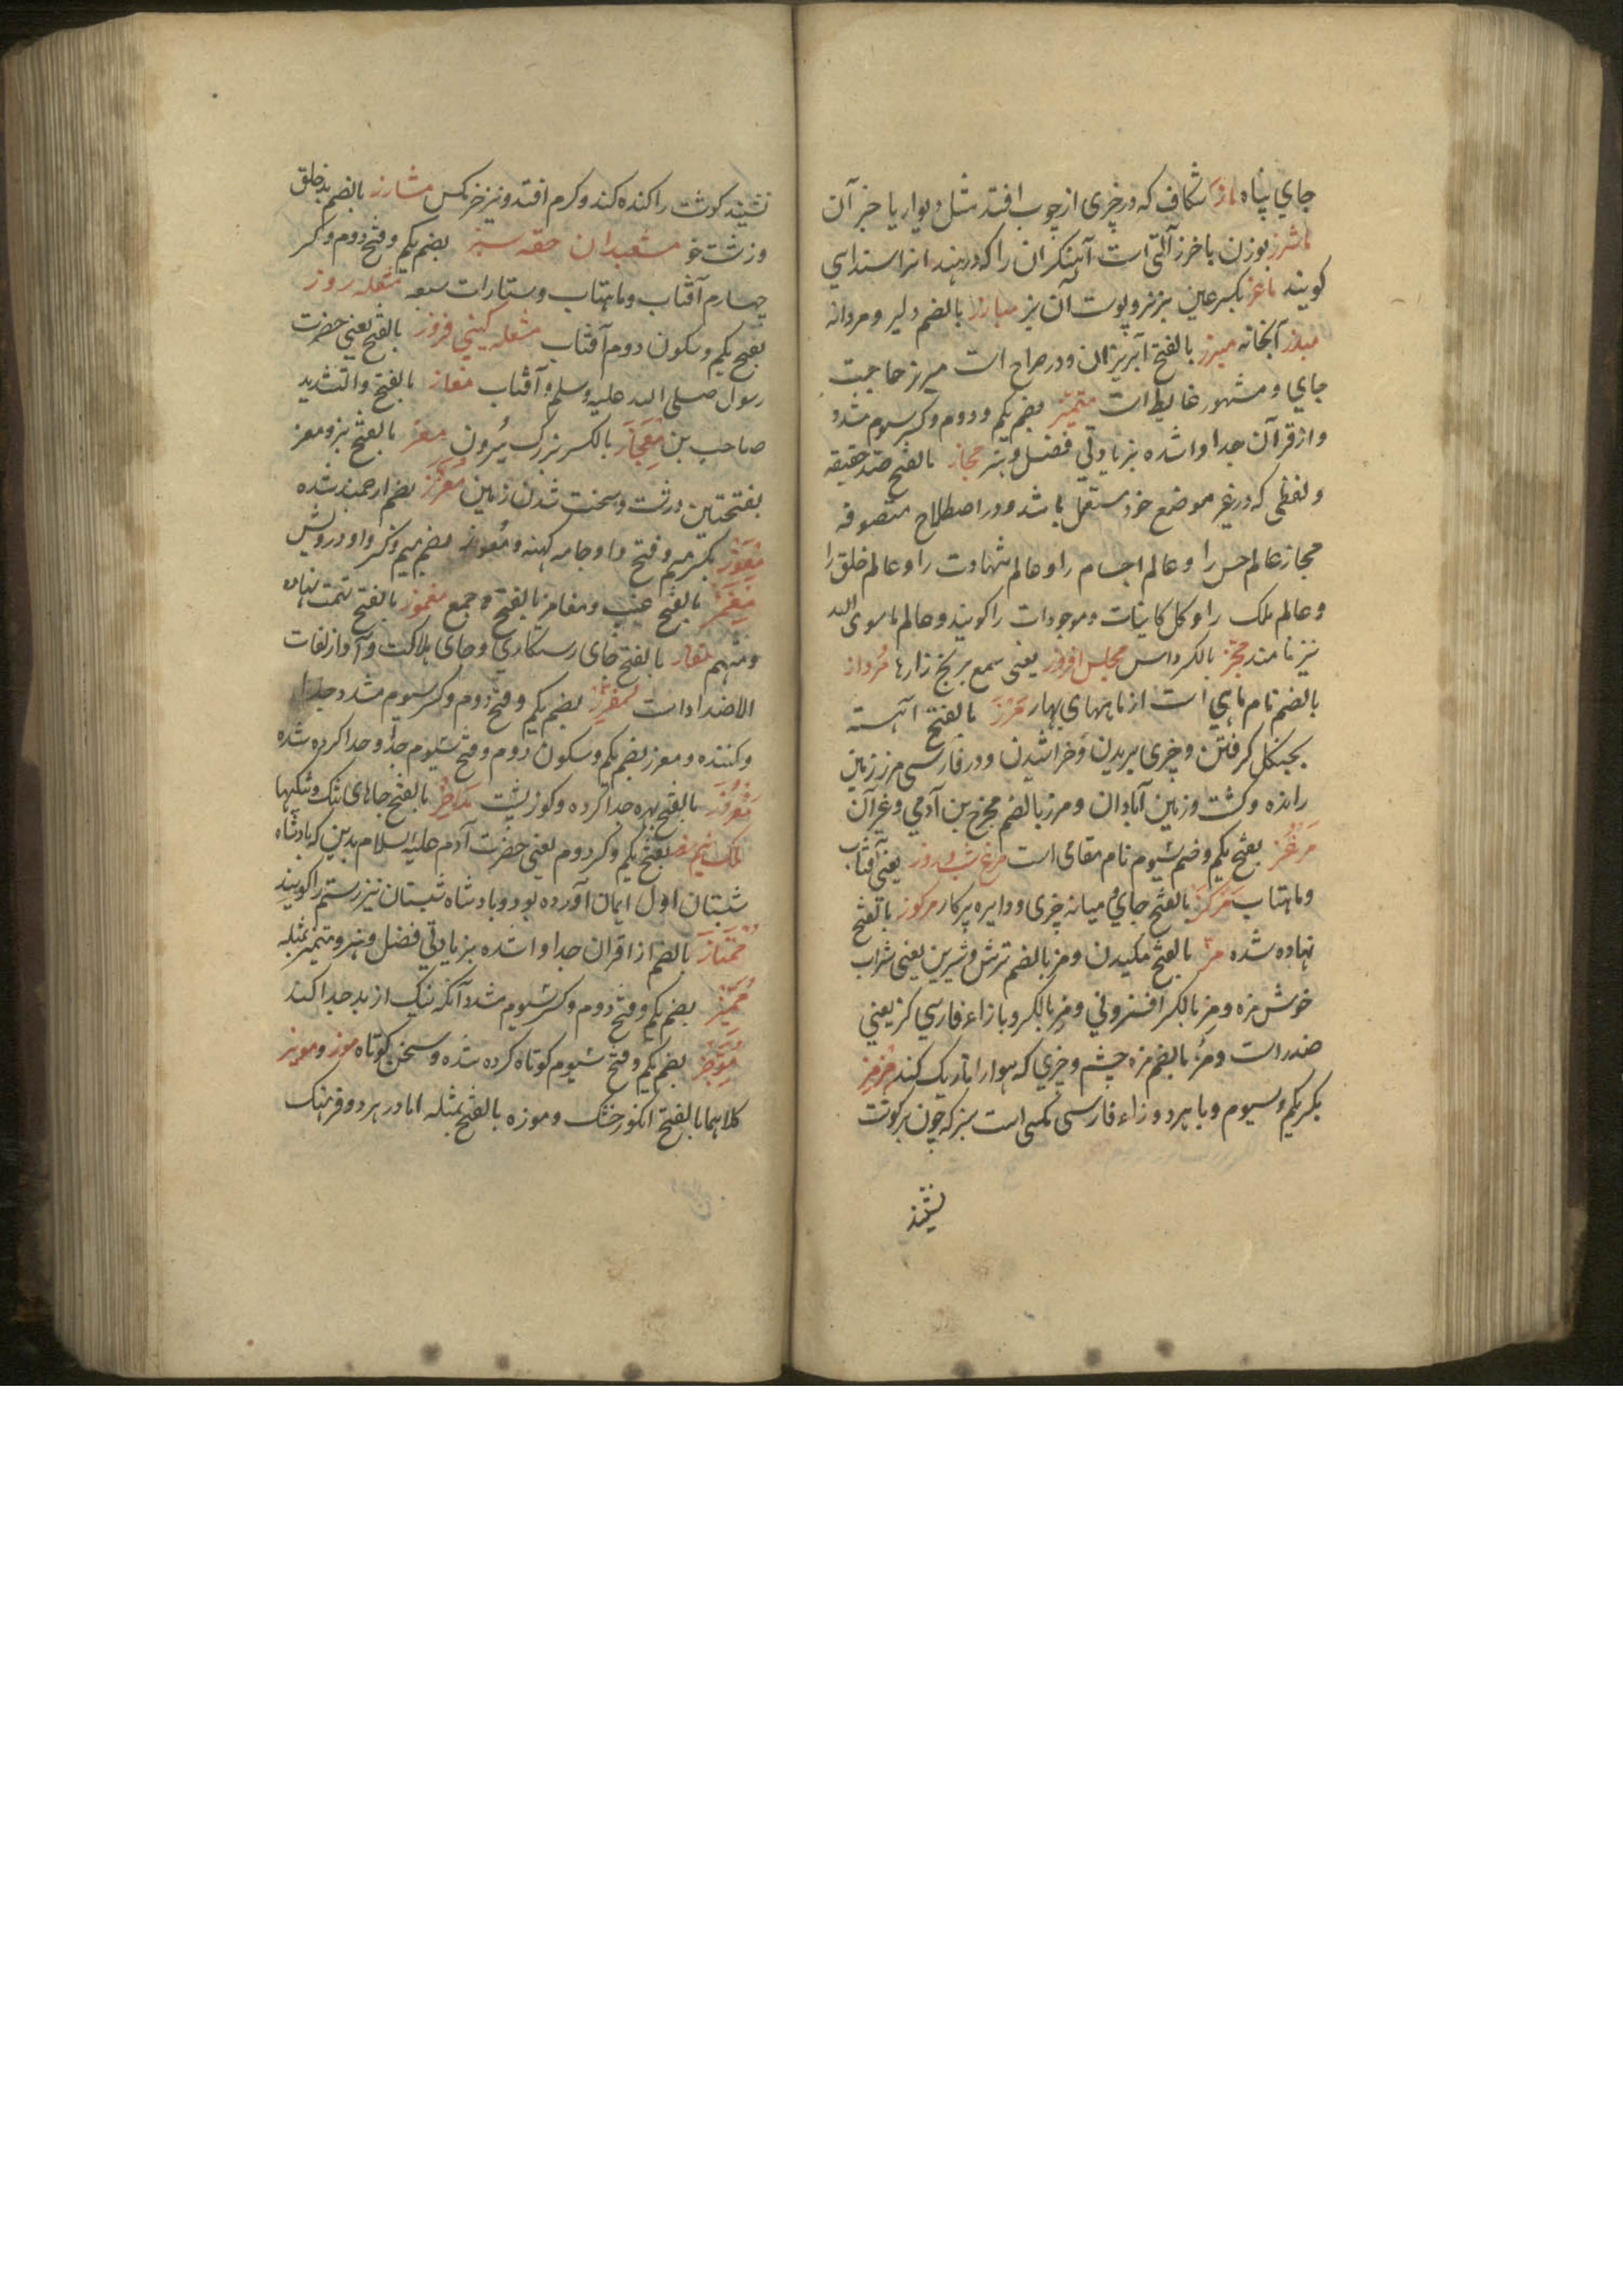 جاي پناه ماز شكاف كه در چزى از چوب افتد مثل ديوار يا جز آن
ماشرز بوزن باخرز آلتى است آهنكران را كه در هند انرا سنداسي
كويند ماعز بكسر عين بز نر و پوست آن بز مبارز بالضم دلير و مردانه
مبرز آبخانه مبرز بالفتح آبريزان و در صراح است مبرز حاجت
جاي و مشهور غايط است متميز بضم يكم و دوم و كسر سيوم مشدد
و از قرآن جدا و اشده بزيادتي فضل و هنر مجاز بالفتح ضد حقيقه
و لفظى كه در غير موضع خود مستعمل باشد و در اصطلاح متصوفه
مجاز عالم حس را و عالم اجسام را و عالم شهادت را و عالم خلق را
و عالم ملك را و كل كاينات و موجودات را كويند و عالم ماسوى الله
نيز نامند محجز بالكر داس مجلس افروز يعنى شمع برنج زارها مرداز
بالضم نام ماهي است از ماههاى بهار مرز بالفتح آهسته
بچنكل كرفتن و چزى بريدن و خراشيدن و در فارسى مرز زمين
رانده و كشت و زمين آبادان و مرز بالضم مخرج بن آدمي و غير آن
مرغز بفتح يكم و ضم سيوم نام مقامى است مرغ شب و روز يعنى آفتاب
و ماهتاب مركز بالفتح جاي و ميانه چزى و دايره پركار مركوز بالفتح
نهاده شده مز بالفتح مكيدن و مز بالضم ترش و شيرين يعنى شراب
خوش مزه و مز بالكر افزوني و مز بالكر و با زاء فارسي كز يعني
ضد راست و مز بالضم مزه چشم و چزي كه هوا را تاريك كند مزمز
بكر يكم و سيوم و با هر دو زاء فارسى مكسى است بز كه چون بر كوشت
نشيند
نشيند كوشت را كنده كند و كرم افتد و نيز خر مكس مشارز بالضم بد خلق
و زشت خو مشعبدان حقه سبز بضم يكم و فتح دوم و كسر
چهارم آفتاب و ماهتاب و ستارات سبعه مشعله روز
بفتح يكم و سكون دوم آفتاب مشعله كيتي فروز بالفتح يعني حضرت
رسول صلى الله عليه و سلم و آفتاب معاز بالفتح و التشديد
صاحب بن معجاز بالكسر بزرك سرون معز بالفتح بز و معز
بفتحتين درشت و سخت شدن زمين معزز بضم ارجمند شده
معوز بكسر ميم و فتح واو جامه كهنه و معوز بضم ميم و كسر واو درويش
مغمز بالفتح عيب و مغامز بالفتح و جمع مغموز بالفتح تهمت نهان
و متهم مفاز بالفتح جاى رستكاري و جاى هلاكت و آواز لغات
الاضداد است مفرز بضم يكم و فتح دوم و كسر سيوم مشدد جدا
و كننده و مفرز بضم يكم و سكون دوم و فتح سيوم جدا و جدا كرده شده
مفروز بالفتح بهره جدا كرده و كوز پشت ملاحز بالفتح جاهاى تنك و تنكيها
ملك نيمروز بفتح يكم و كر دوم يعنى حضرت آدم عليه السلام بدين كه پادشاه
شبستان اول ايمان آورده بود و پادشاه شبستان نيز رستم را كويند
ممتاز بالضم از اقران جدا و اشده بزيادتي فضل و هنر و متميز بمثله
مميز بضم يكم و فتح دوم و كر سيوم مشدد آنكه نيك از بد جدا كند
موجز بضم يكم و فتح سيوم كوتاه كرده شده و سخن كوتاه موز و مويز
كلاهما بالفتح انكور خشك و موزه بالفتح بمثله اما در هر دو فرهنك